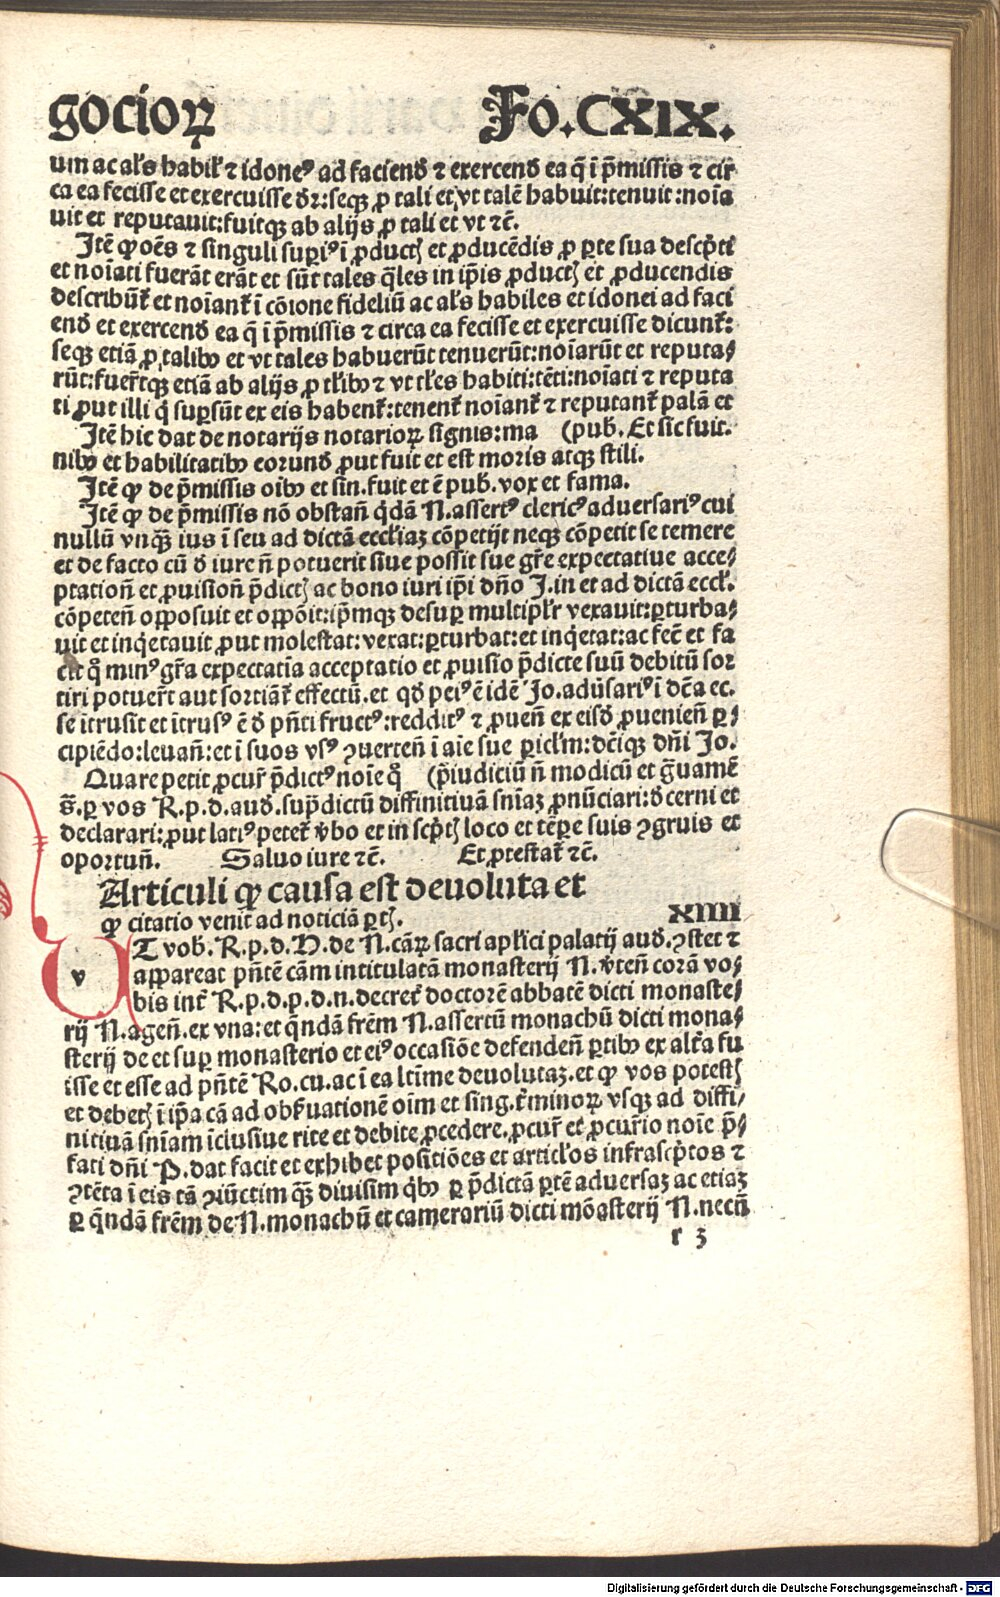 gocioꝝ Fo.CXIX.
um ac al's habil' ⁊ idoneꝰ ad faciend' ⁊ exercend' ea q̄ ī p̄missis ⁊ cir
ca ea fecisse et exercuisse dr̄: seqꝫ ꝓ tali et vt talē habuit: tenuit: noīa
uit et reputauit: fuitqꝫ ab alijs ꝓ tali et vt ⁊c̄.
Itē ꝙ oēs ⁊ singuli supꝛiꝰ ī ꝓduct̄ et ꝓducēdis ꝓ ꝑte sua descp̄ti
et noīati fuerāt erāt et sūt tales q̄les in ip̄is ꝓduct̄ et ꝓducendis
describūt᷑ et noīant᷑ ī cōione fideliū ac al's habiles et idonei ad faci
end' et exercend' ea q̄ ī p̄missis ⁊ circa ea fecisse et exercuisse dicunt᷑:
seqꝫ etiā ꝓ talibꝰ et vt tales habuerūt tenuerūt: noīarūt et reputa⸗
rūt: fuer̄tqꝫ etiā ab alijs ꝓ tl'ibꝰ ⁊ vt tl'es habiti: tēti: noīati ⁊ reputa
ti ꝓut illi q̇ suꝑsūt ex eis habent᷑: tenent᷑ noīant᷑ ⁊ reputant᷑ palā et
Itē hic dat de notarijs notarioꝝ signis: ma (pub. Et sic fuit.
nibꝰ et habilitatibꝰ eorund' ꝓut fuit et est moris atqꝫ stili.
Itē ꝙ de p̄missis oībꝰ et sin. fuit et ē pub. vox et fama.
Itē ꝙ de p̄missis nō obstan̄ q̇dā N. assertꝰ clericꝰ aduersariꝰ cui
nullū vnqꝫ̄ ius ī seu ad dictā eccl'iaꝫ cōpetijt neqꝫ cōpetit se temere
et de facto cū d' iure n̄ potuerit siue possit sue gr̄e expectatiue acce⸗
ptation̄ et ꝓuision̄ p̄dict̄ ac bono iuri ip̄i dn̄o J. in et ad dictā eccl'.
cōpeten̄ opposuit et oppōit: ip̄mqꝫ desuꝑ multipl'r vexauit: ꝑturba⸗
uit et inq̇etauit ꝓut molestat: vexat: ꝑturbat: et inq̇etat: ac fec̄ et fa
cit q̊ minꝰ gr̄a expectatīa acceptatio et ꝓuisio p̄dicte suū debitū sor
tiri potuer̄t aut sortiāt᷑ effectū. et qd' peiꝰ ē idē Jo. adūsariꝰ ī dc̄a ec.
se ītrusit et ītrusꝰ ē d' pn̄ti fructꝰ: redditꝰ ⁊ ꝓuen̄ ex eisd' ꝓuenien̄ ꝑ⸗
cipiēdo: leuan̄: et ī suos vsꝰ ꝯuerten̄ ī aīe sue ꝑicl'm: dc̄iqꝫ dn̄i Jo.
Quare petit ꝓcur̄ p̄dictꝰ noīe q̊ (p̄iudiciū n̄ modicū et g̈uamē
s̄. ꝑ vos R.p.d. aud'. sup̄dictū diffinitiuā sn̄iaꝫ ꝓnūciari: d'cerni et
declarari: ꝓut latiꝰ petet᷑ v̄bo et in scp̄t̄ loco et tēꝑe suis ꝯgruis et
oportun̄. Saluo iure ⁊c̄. Et ꝓtestat᷑ ⁊c̄.
Articuli ꝙ causa est deuoluta et
ꝙ citatio venit ad noticiā ꝑt̄. XIIII
v
T vob. R.p.d. H. de N. cāꝝ sacri apl'ici palatij aud'. ꝯstet ⁊
appareat pn̄tē cām intitulatā monasterij N. v̄ten̄ corā vo⸗
bis int᷑ R.p.d.p.d.n. decret᷑ doctorē abbatē dicti monaste⸗
rij N. agen̄. ex vna: et q̄ndā frēm N. assertū monachū dicti mona⸗
sterij de et suꝑ monasterio et eiꝰ occasiōe defenden̄ ꝑtibꝰ ex alt᷑a fu
isse et esse ad pn̄tē Ro. cu. ac ī ea l'tīme deuolutaꝫ. et ꝙ vos potest̄
et debet̄ ī ip̄a cā ad obs̄uationē oīm et sing. t᷑minoꝝ vsqꝫ ad diffi⸗
nitiuā sn̄iam īclusiue rite et debite ꝓcedere. ꝓcur̄ et ꝓcur̄io noīe p̄⸗
fati dn̄i P. dat facit et exhibet positiōes et articl'os infrascp̄tos ⁊
ꝯtēta ī eis tā ꝯiūctim qꝫ̄ diuisim q̇bꝰ ꝑ p̄dictā ꝑtē aduersaꝫ ac etiaꝫ
ꝑ q̄ndā frēm de N. monachū et camerariū dicti mōasterij N. necn̄
r 3
Digitalisierung gefördert durch die Deutsche Forschungsgemeinschaft - DFG